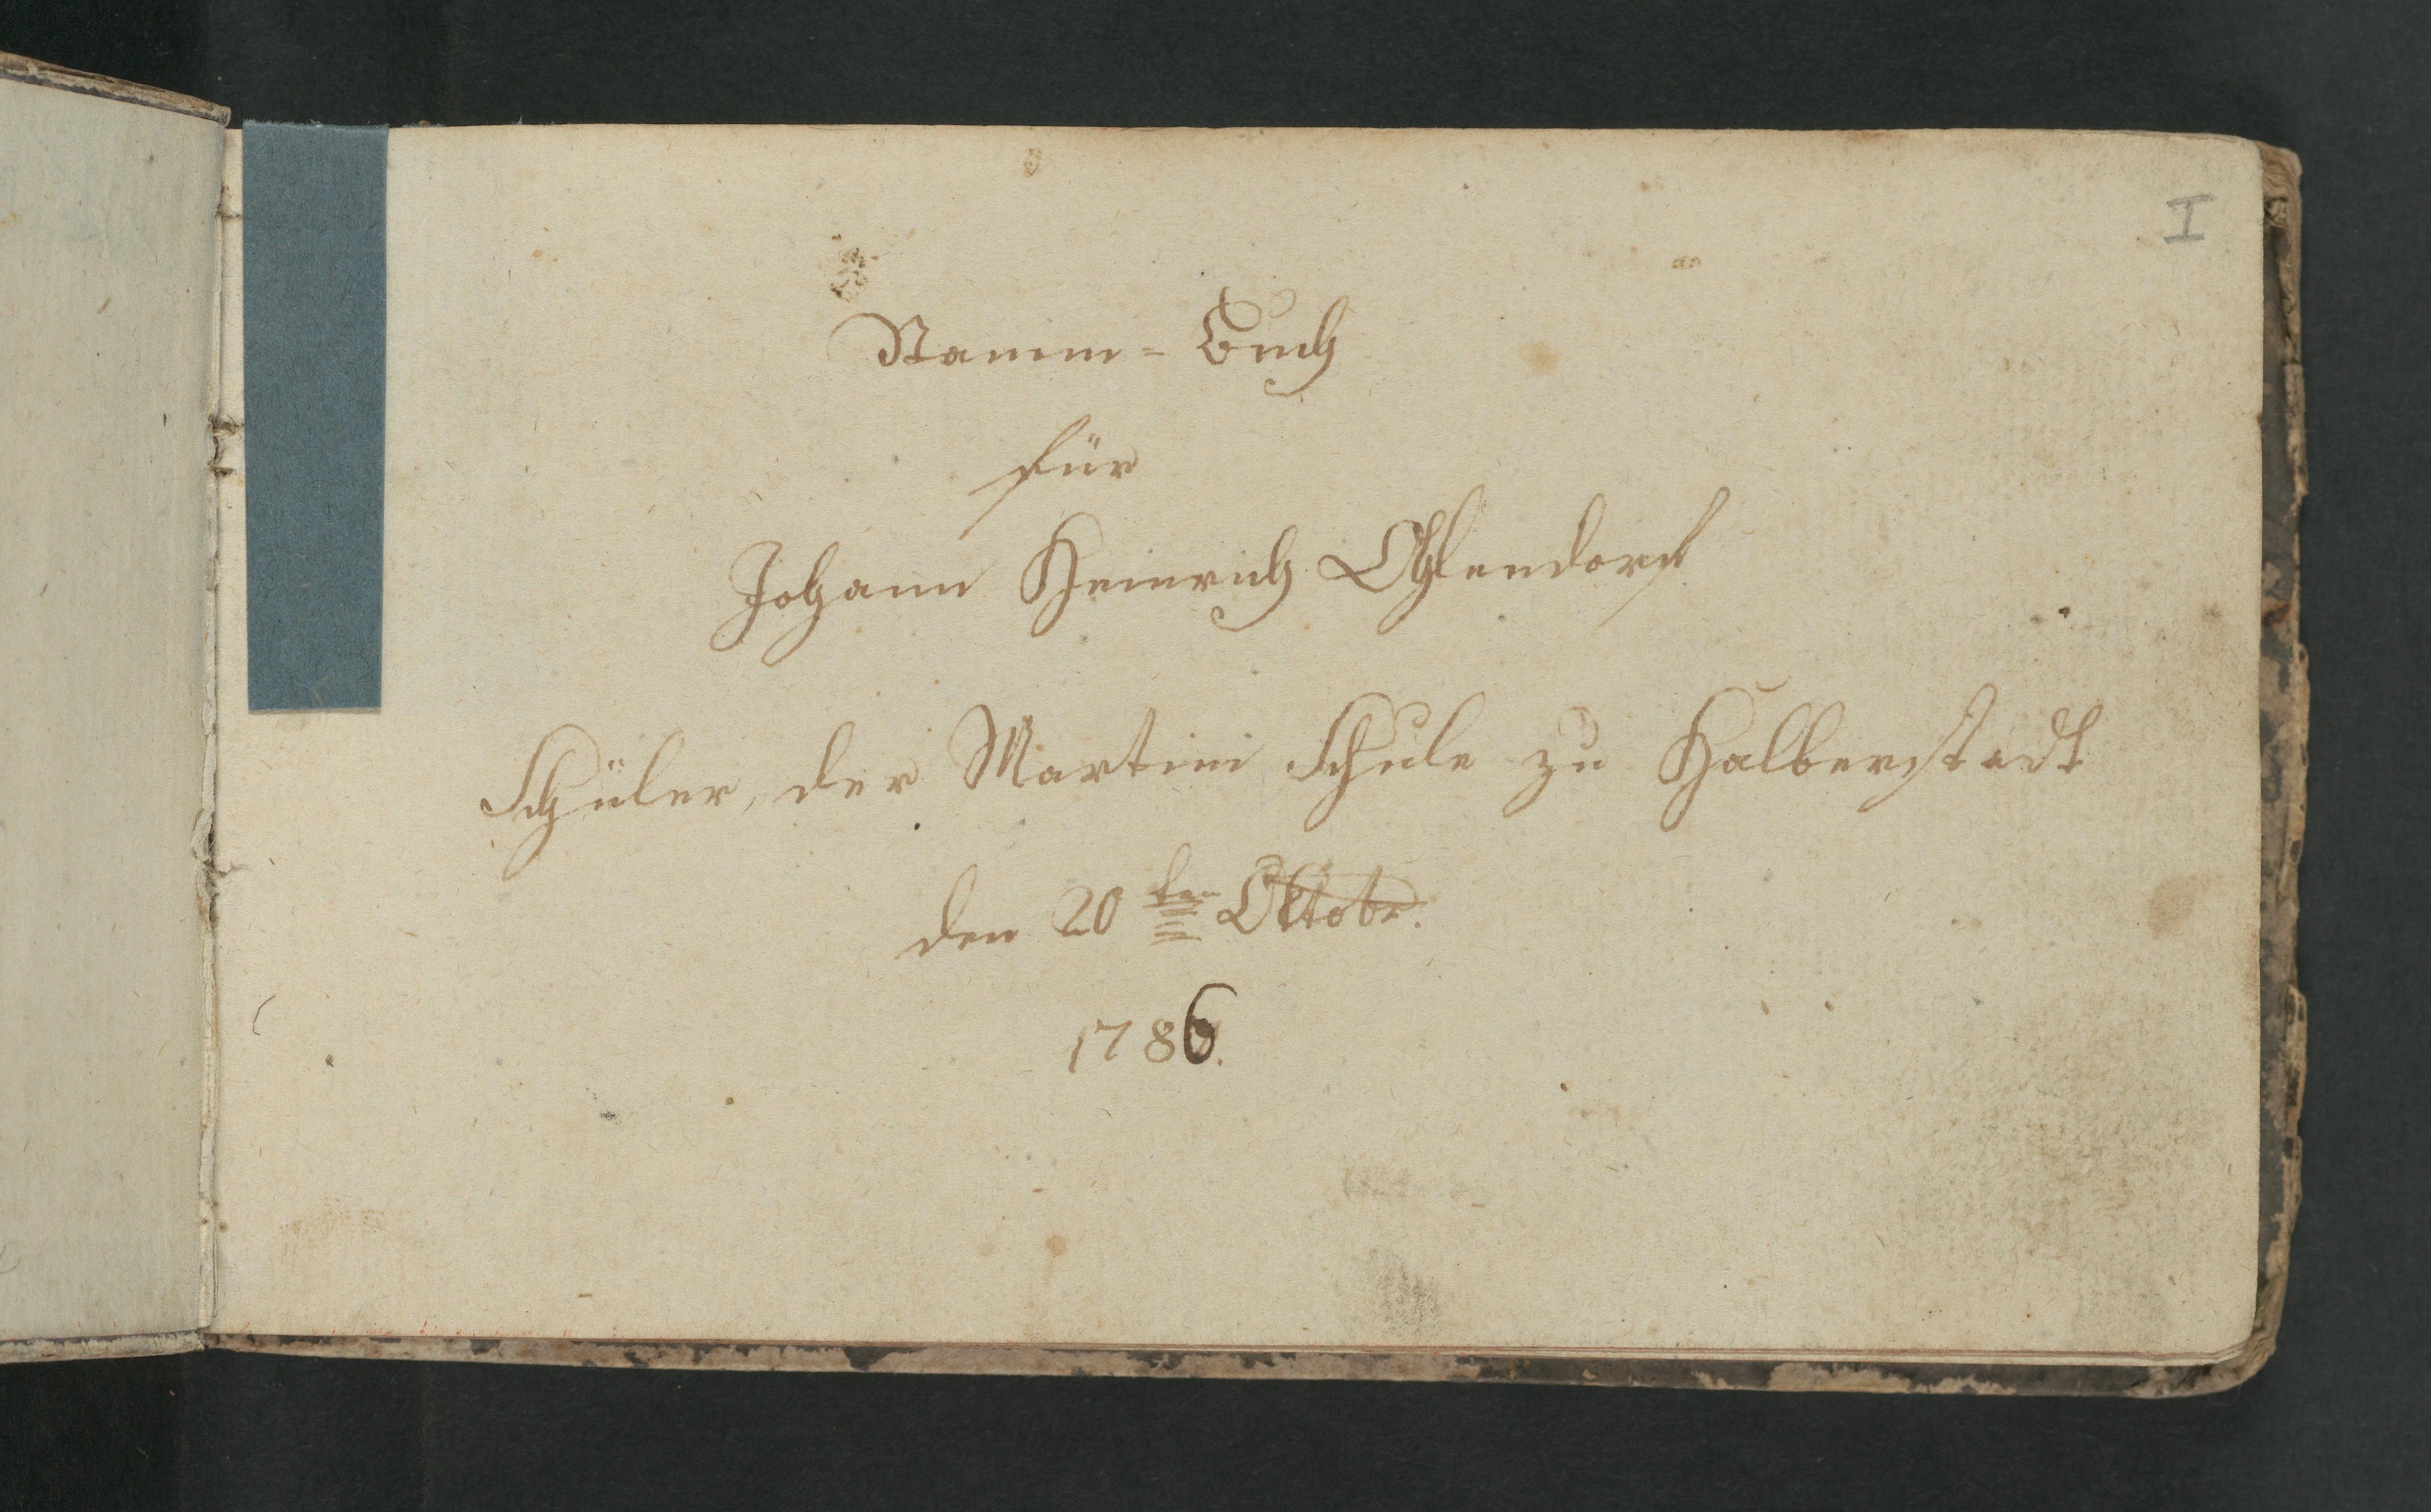 I
Stamm=Buch
für
Johann Heinrich Ohlendorf
Schüler, der Martini Schule zu Halberstadt
den 20ten Oktobr.
1786.